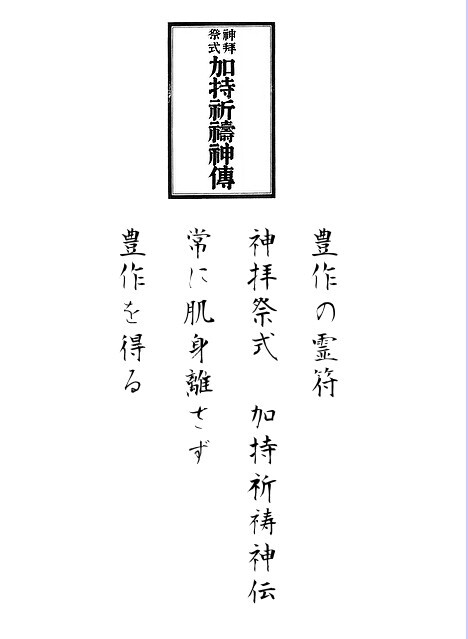 神拜
祭式
加持祈禱神傳
豊作の霊符
神拝祭式　加持祈祷神伝
常に肌身離さず
豊作を得る